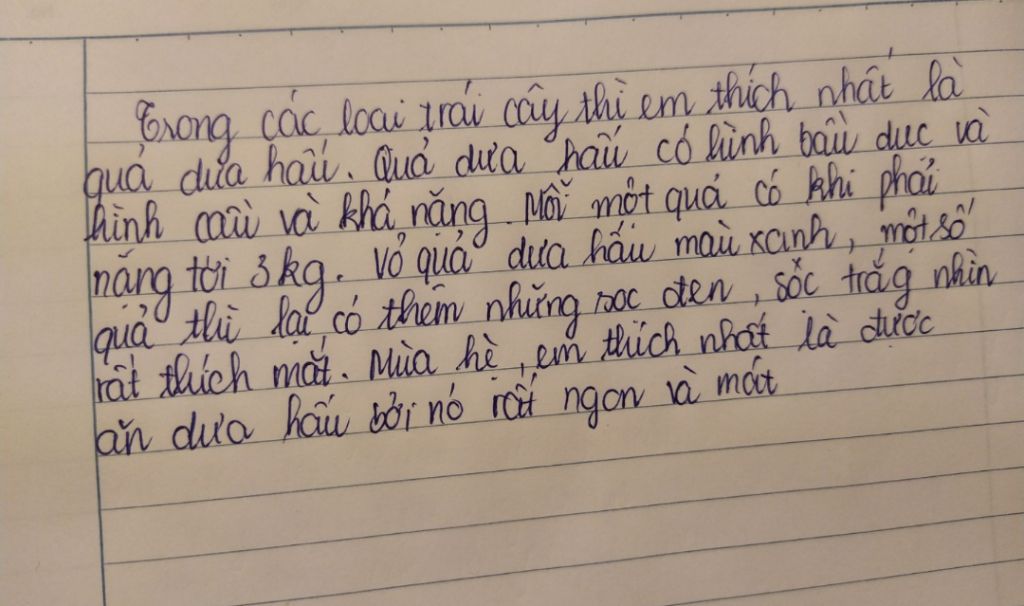 Trong các loại trái cây thì em thích nhất là
quả dưa hấu. Quả dưa hấu có hình bầu dục và
hình cầu và khá nặng. Mỗi một quả có khi phải
nặng tới 3kg. Vỏ quả dưa hấu màu xanh, một số
quả thì lại có thêm những sọc đen, sốc trắg nhìn
rất thích mắt. Mùa hè, em thích nhất là được
ăn dưa hấu bởi nó rất ngon và mát